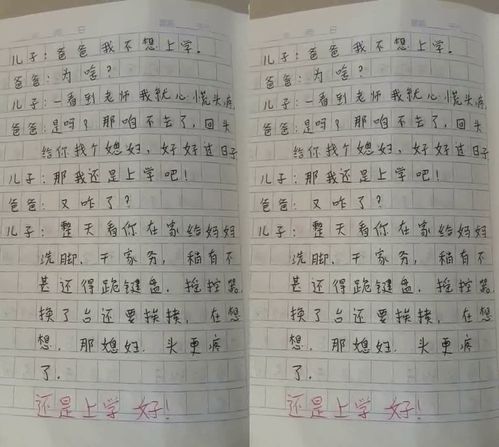 儿子:爸爸我不想上学。
爸爸:为啥?
儿子:一看到老师我就心慌头疼
爸爸:是吗?那咱不去了,回头
给你找个媳妇,好好过日子
儿子:那我还是上学吧!
爸爸:又咋了?
儿子:整天看你在家给妈妈
洗脚,干家务,稍有不
甚还得跪键盘.摇控器,
换了台还要挨揍,在想
想.那媳妇.头更疼
了.
还是上学好!
儿子:爸爸我不想上学。
爸爸:为啥?
儿子:一看到老师我就心慌头疼
爸爸:是吗?那咱不去了,回头
给你找个媳妇,好好过日子
儿子:那我还是上学吧!
爸爸:又咋了?
儿子:整天看你在家给妈妈
洗脚,干家务,稍有不
甚还得跪键盘.摇控器,
换了台还要挨揍,在想
想.那媳妇.头更疼
了.
还是上学好!